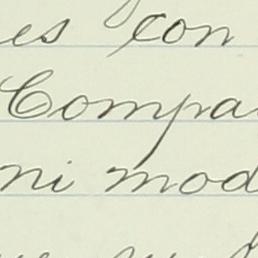 es con
Compa
ni mod